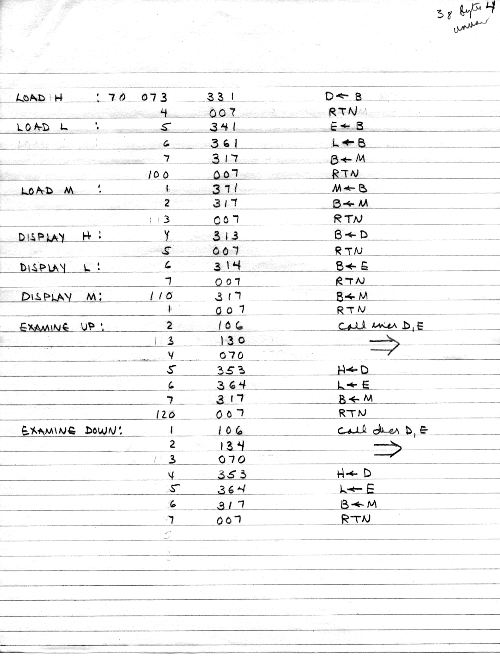 38 Bytes
LOAD H : 70 073 331 D←B
4 007 RTN
LOAD L : 5 341 E←B
6 361 L←B
7 317 B←M
100 007 RTN
LOAD M : 1 371 M←B
2 317 B←M
3 007 RTN
DISPLAY H : 4 313 B←D
5 007 RTN
DISPLAY L : 6 314 B←E
7 007 RTN
DISPLAY M : 110 317 B←M
1 007 RTN
EXAMINE UP : 2 106 Call incr D,E
3 130 ⇒
4 070
5 353 H←D
6 364 L←E
7 317 B←M
120 007 RTN
EXAMINE DOWN : 1 106 Call decr D,E
2 134 ⇒
3 070
4 353 H←D
5 364 L←E
6 317 B←M
7 007 RTN